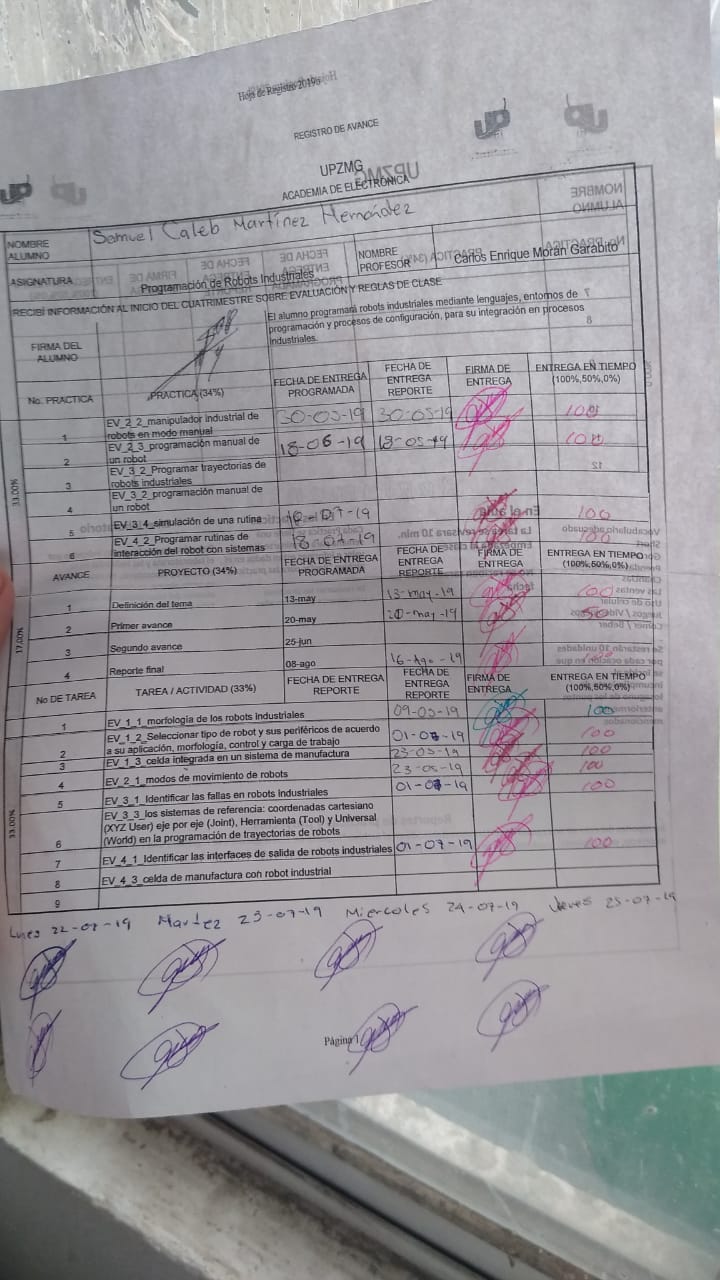 Hoja de Registro 2019
REGISTRO DE AVANCE
UPZMG
ACADEMIA DE ELECTRÓNICA
NOMBRE ALUMNO Samuel Caleb Martínez Hernández
ASIGNATURA Programación de Robots Industriales NOMBRE PROFESOR Carlos Enrique Moran Garabito
RECIBÍ INFORMACIÓN AL INICIO DEL CUATRIMESTRE SOBRE EVALUACIÓN Y REGLAS DE CLASE
FIRMA DEL ALUMNO El alumno programará robots industriales mediante lenguajes, entornos de programación y procesos de configuración, para su integración en procesos industriales.
No. PRACTICA PRACTICA (34%) FECHA DE ENTREGA PROGRAMADA FECHA DE ENTREGA REPORTE FIRMA DE ENTREGA ENTREGA EN TIEMPO (100%,50%,0%)
33.00%
1 EV_2_2_manipulador industrial de robots en modo manual 30-05-19 30-05-19 100
2 EV_2_3_programación manual de un robot 18-06-19 100
3 EV_3_2_Programar trayectorias de robots industriales
4 EV_3_2_programación manual de un robot
5 EV_3_4_simulación de una rutina 100
6 EV_4_2_Programar rutinas de interacción del robot con sistemas 100
AVANCE PROYECTO (34%) FECHA DE ENTREGA PROGRAMADA FECHA DE ENTREGA REPORTE FIRMA DE ENTREGA ENTREGA EN TIEMPO (100%,50%,0%)
17.00%
1 Definición del tema 13-may 13-may-19 100
2 Primer avance 20-may 20-may-19 50
3 Segundo avance 25-jun
4 Reporte final 08-ago 16-Ago-19
No DE TAREA TAREA / ACTIVIDAD (33%) FECHA DE ENTREGA REPORTE FECHA DE ENTREGA REPORTE FIRMA DE ENTREGA ENTREGA EN TIEMPO (100%,50%,0%)
33.00%
1 EV_1_1_morfología de los robots industriales 09-05-19 100
2 EV_1_2_Seleccionar tipo de robot y sus periféricos de acuerdo a su aplicación, morfología, control y carga de trabajo 01-07-19 100
3 EV_1_3_celda integrada en un sistema de manufactura 23-05-19 100
4 EV_2_1_modos de movimiento de robots 23-05-19 100
5 EV_3_1_Identificar las fallas en robots industriales 01-07-19 100
6 EV_3_3_los sistemas de referencia: coordenadas cartesiano (XYZ User) eje por eje (Joint), Herramienta (Tool) y Universal (World) en la programación de trayectorias de robots
7 EV_4_1_Identificar las interfaces de salida de robots industriales 01-07-19 100
8 EV_4_3_celda de manufactura con robot industrial
9
Lunes 22-07-19 Martez 23-07-19 Miercoles 24-07-19 Jueves 25-07-19
Página 1